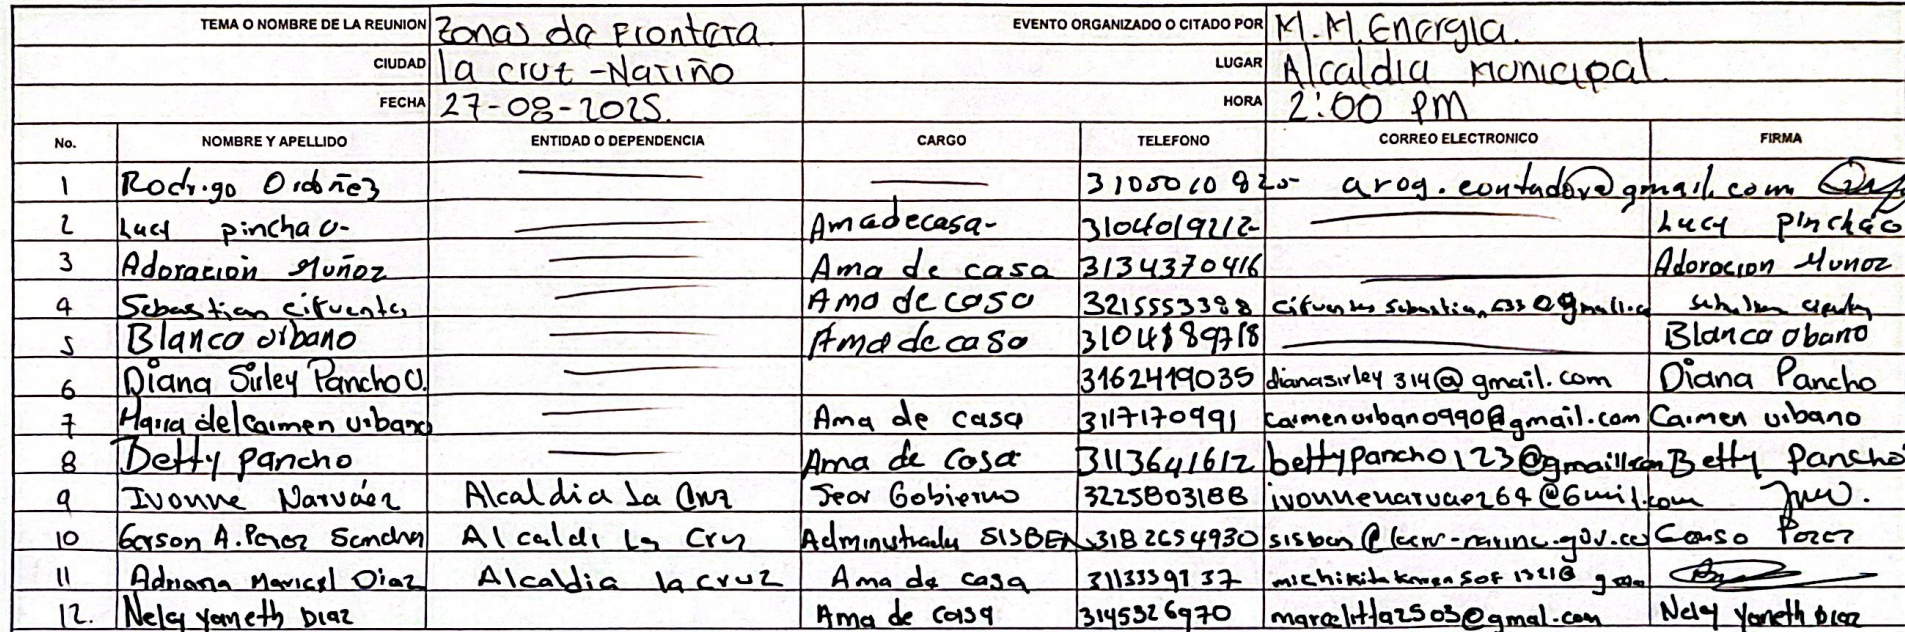 TEMA O NOMBRE DE LA REUNION Zonas de Frontera. EVENTO ORGANIZADO O CITADO POR M.M. Energia.
CIUDAD la cruz - Nariño LUGAR Alcaldia Municipal.
FECHA 27-08-2025. HORA 2:00 PM
No. NOMBRE Y APELLIDO ENTIDAD O DEPENDENCIA CARGO TELEFONO CORREO ELECTRONICO FIRMA
1 Rodrigo Ordoñez 3105010820 arog.contador@gmail.com
2 Lucy pinchao- Amadecasa- 3104019212- Lucy pinchao
3 Adoracion Muñoz Ama de casa 3134370416 Adoracion Munoz
4 Sebastian cifuentes Ama de casa 3215553388
5 Blanca urbano Ama de casa Blanca Obano
6 Diana Sirley Pancho U. 3162419035 dianasirley314@gmail.com Diana Pancho
7 Maria del Carmen urbano Ama de casa 3117170991 carmenurbano990@gmail.com Carmen urbano
8 Betty pancho Ama de Casa 3113641612 bettypancho123@gmail.com Betty Pancho
9 Ivonne Narváez Alcaldia La Cruz Gobierno 3225803188
10 Gerson A. Perez Alcaldi La Cruz SISBEN 3182654930 Perez
11 Adriana Maricel Diaz Alcaldia la cruz Ama de casa 3113339737
12. Nelcy Yaneth Diaz Ama de casa 3145326970 marcelitta2503@gmal.com Nelcy Yaneth Diaz